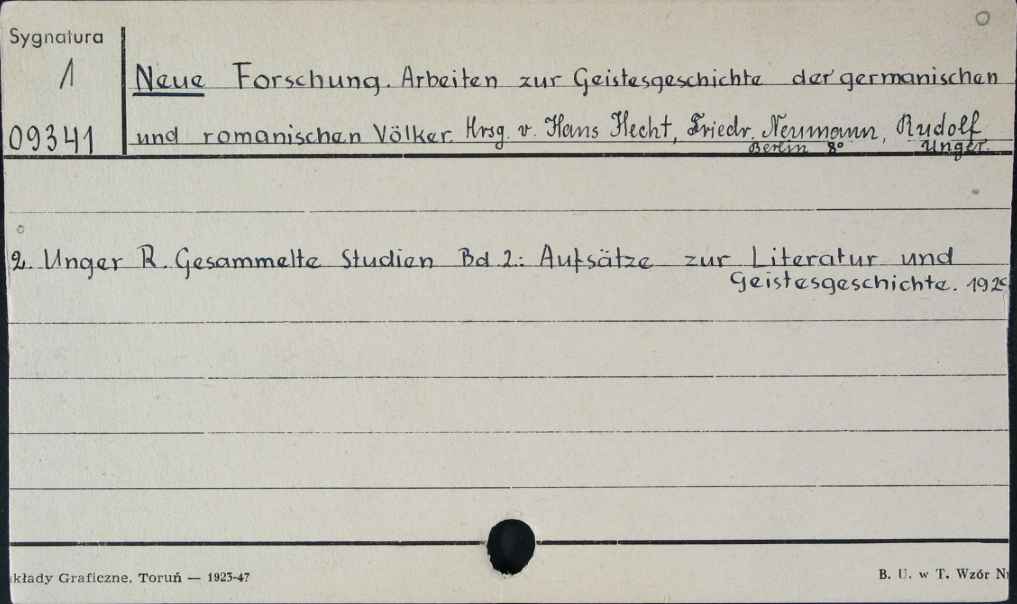 Sygnatura
1
09341
Neue Forschung. Arbeiten zur Geistesgeschichte der germanischen
und romanischen Völker. Hrsg. v. Hans Hecht, Friedr. Neumann, Rudolf
Unger.
Berlin 8º
2. Unger R. Gesammelte Studien Bd 2.: Aufsätze zur Literatur und
Geistesgeschichte. 1929
kłady Graficzne, Toruń — 1923-47
B. U. w T. Wzór Nr